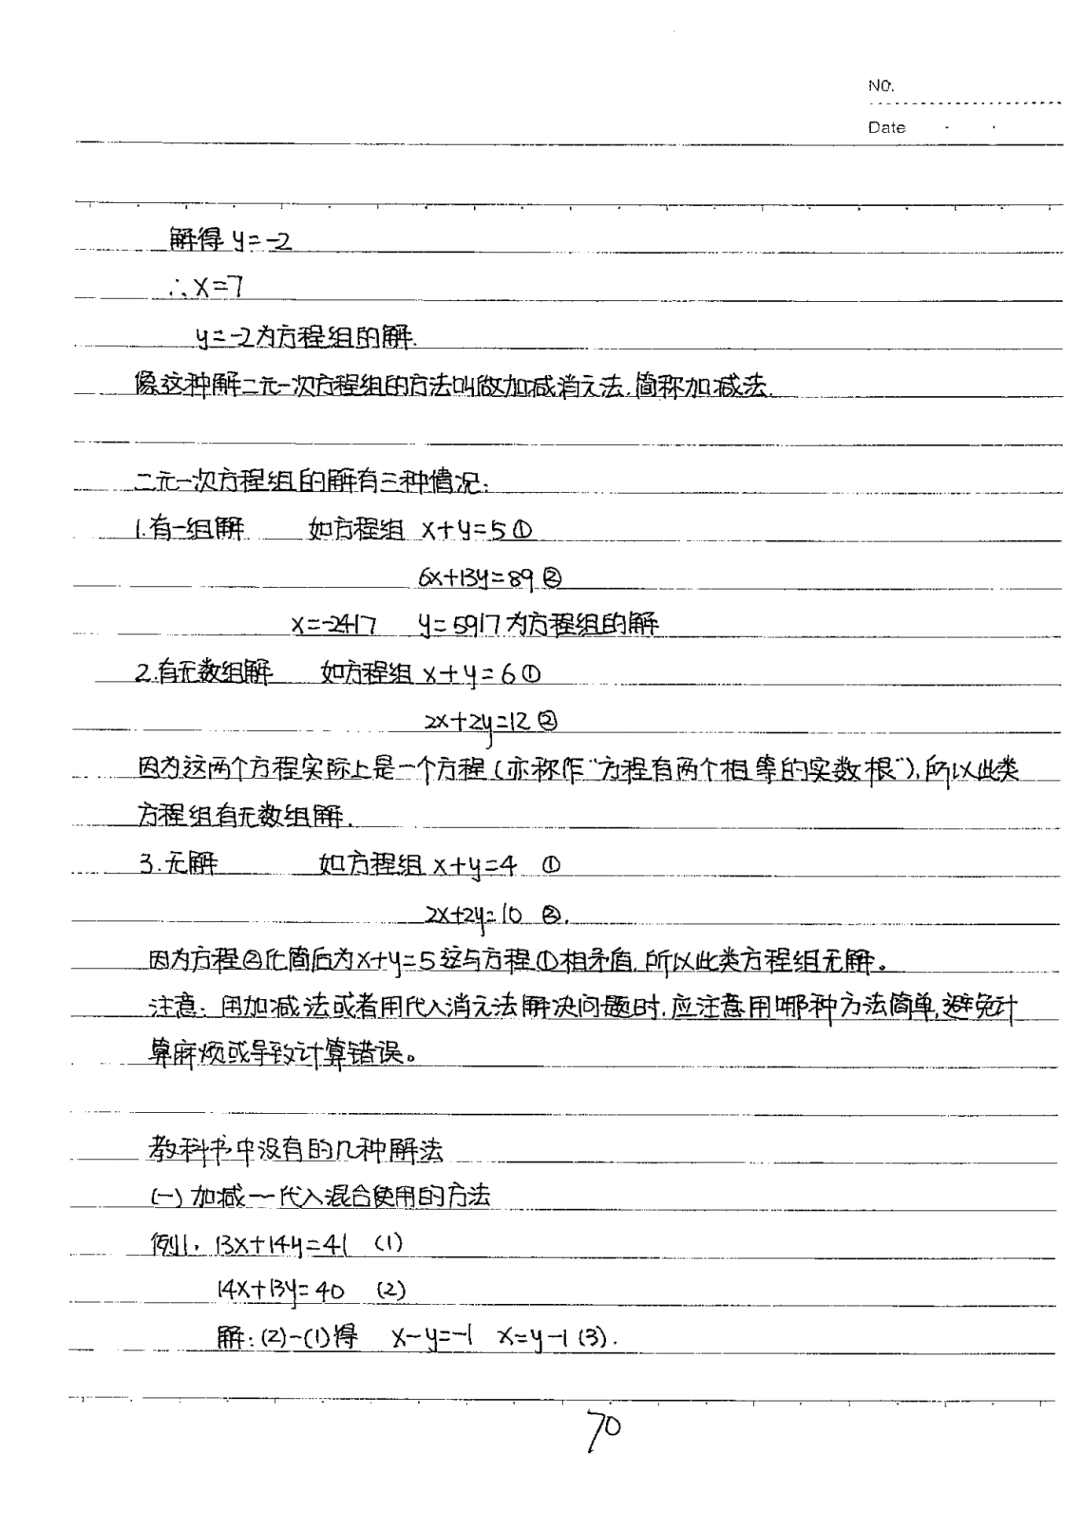 NO.
Date
解得 y=-2
∴x=7
y=-2为方程组的解.
像这种解二元一次方程组的方法叫做加减消元法.简称加减法.
二元一次方程组的解有三种情况:
1.有一组解 如方程组 x+y=5①
6x+13y=89②
x=-2417 y=5917为方程组的解
2.有无数组解 如方程组 x+y=6①
2x+2y=12②
因为这两个方程实际上是一个方程(亦称作“方程有两个相等的实数根”),所以此类
方程组有无数组解.
3.无解 如方程组 x+y=4 ①
2x+2y=10 ②.
因为方程②化简后为x+y=5这与方程①相矛盾.所以此类方程组无解。
注意:用加减法或者用代入消元法解决问题时,应注意用哪种方法简单,避免计
算麻烦或导致计算错误。
教科书中没有的几种解法
(一)加减一代入混合使用的方法
例1. 13x+14y=41 (1)
14x+13y=40 (2)
解:(2)-(1)得 x-y=-1 x=y-1 (3).
70